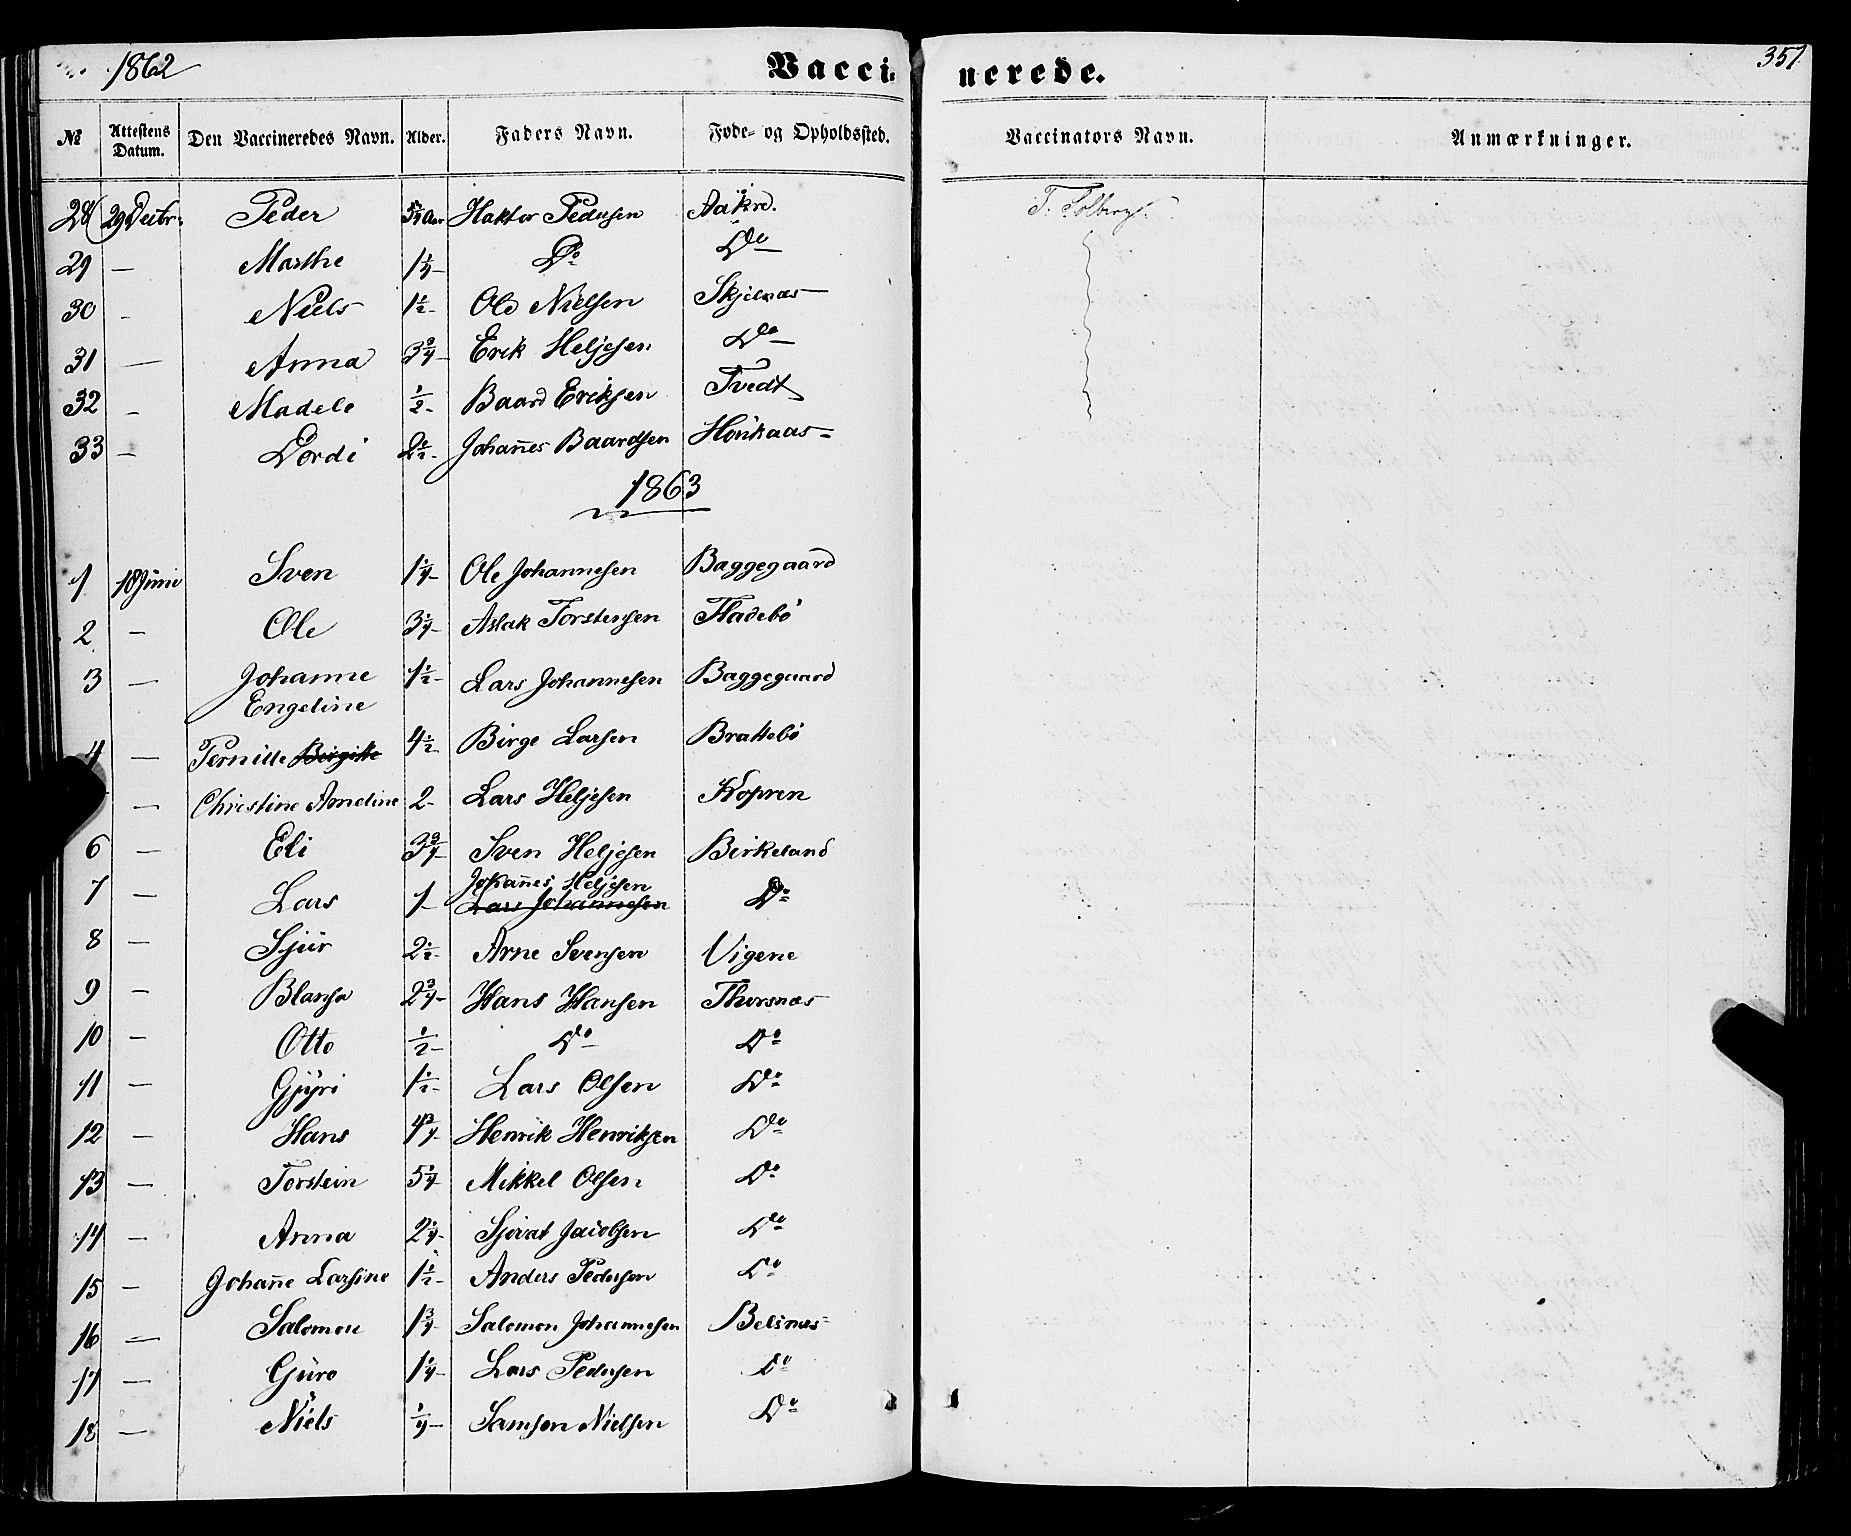 1862 Vaccinerede. 351
№ Attestens Datum. Den Vaccineredes Navn. Alder. Faders Navn. Føde- og Opholdssted. Vaccinators Navn. Anmærkninger.
28 29 Decbr. Peder Aar Haktor Pedersen Aakre. T. Solberg.
29 — Marthe 1 1/4 Do Do
30 - Niels 1 1/2 Ole Nielsen Skjelnæs
31 — Anna 3 3/4 Erik Heljesen Do
32 - Madele 1/2 Baard Eriksen Tvedt
33 - Dordi 2 1/2 Johan̄es Baardsen
1863
1 18 Juni Sven 1 1/4 Ole Johannesen Baggegaard
2 — Ole 3 1/4 Aslak Torstensen Fladebø
3 — Johanne 1 1/2 Lars Johannesen Baggegaard
Engeline
4 — Pernille Birgitte 4 1/2 Birge Larsen Brattebø
— Christine Ameline 2 Lars Heljesen Kopren
6 — Eli 3 3/4 Sven Heljesen Birkeland
7 — Lars 1 Johan̄es Heljesen Do
Lars Johannesen
8 — Sjur 2 1/2 Arne Svensen Vigene
9 — 2 3/4 Hans Hansen Thorsnæs
10 — Otto 1/2 Do Do
11 — Gjyri 1 1/2 Lars Olsen Do
12 — Hans 4 3/4 Henrik Henriksen Do
13 — Torstein 5 1/4 Mikkel Olsen Do
14 — Anna 2 1/4 Sjovat Jacobsen Do
15 — Johan̄e Larsine 1 1/2 Anders Pedersen Do
16 — Salomon 1 3/4 Salomon Johannesen Belsnæs
17 — Guro 1 1/4 Lars Pedersen Do
18 — Niels 1/4 Samson Nielsen Do